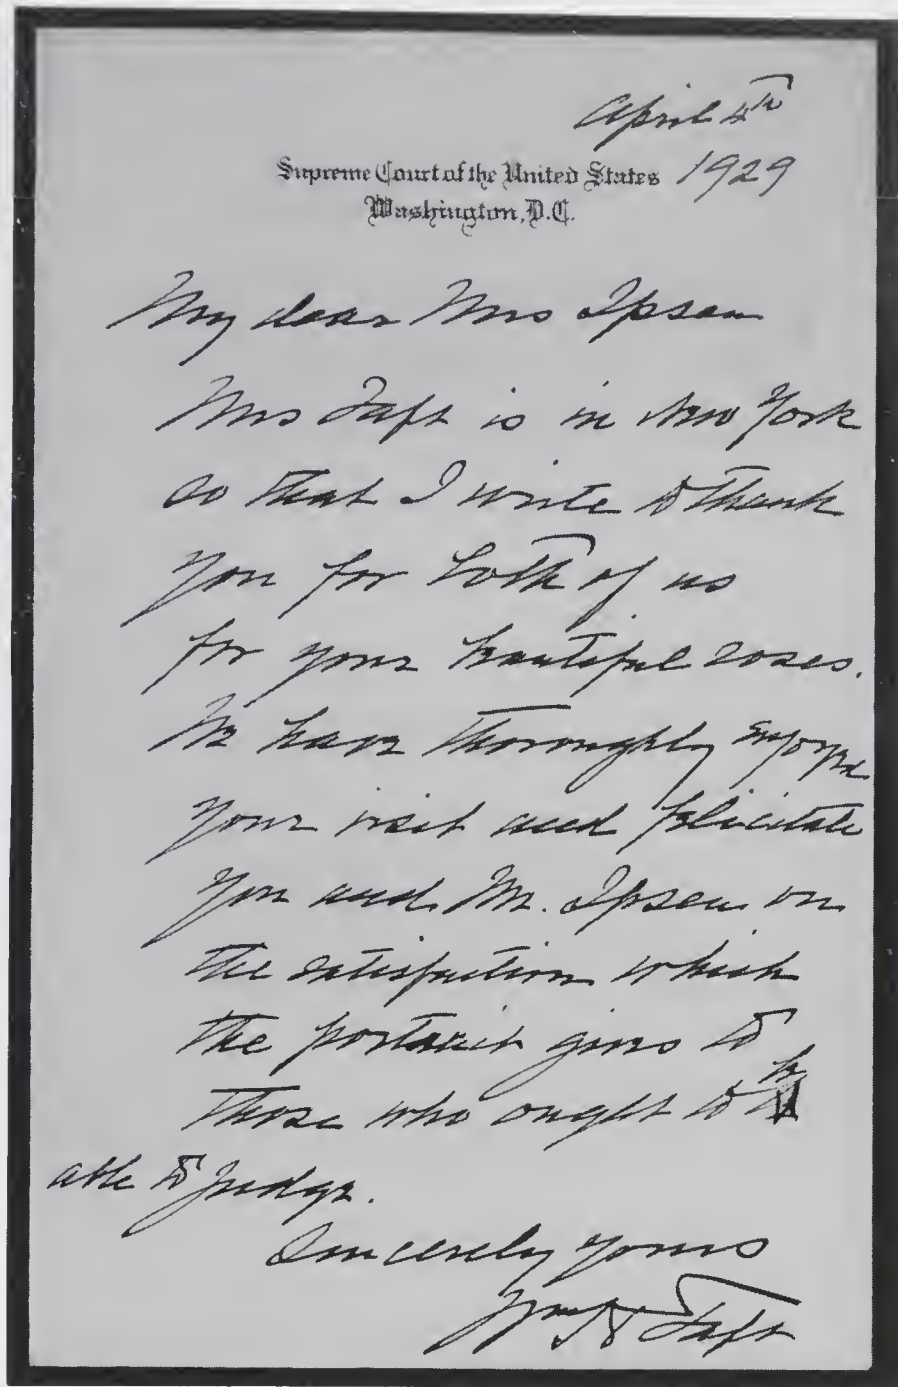 April 4th
Supreme Court of the United States 1929
Washington, D.C.
My dear Mrs Ipsen
Mrs Taft is in New York
so that I write to thank
you for both of us
for your beautiful roses.
We have thoroughly enjoyed
your visit and felicitate
you and Mr. Ipsen on
the satisfaction which
the portrait gives to
those who ought to be
able to judge.
Sincerely yours
Wm H Taft